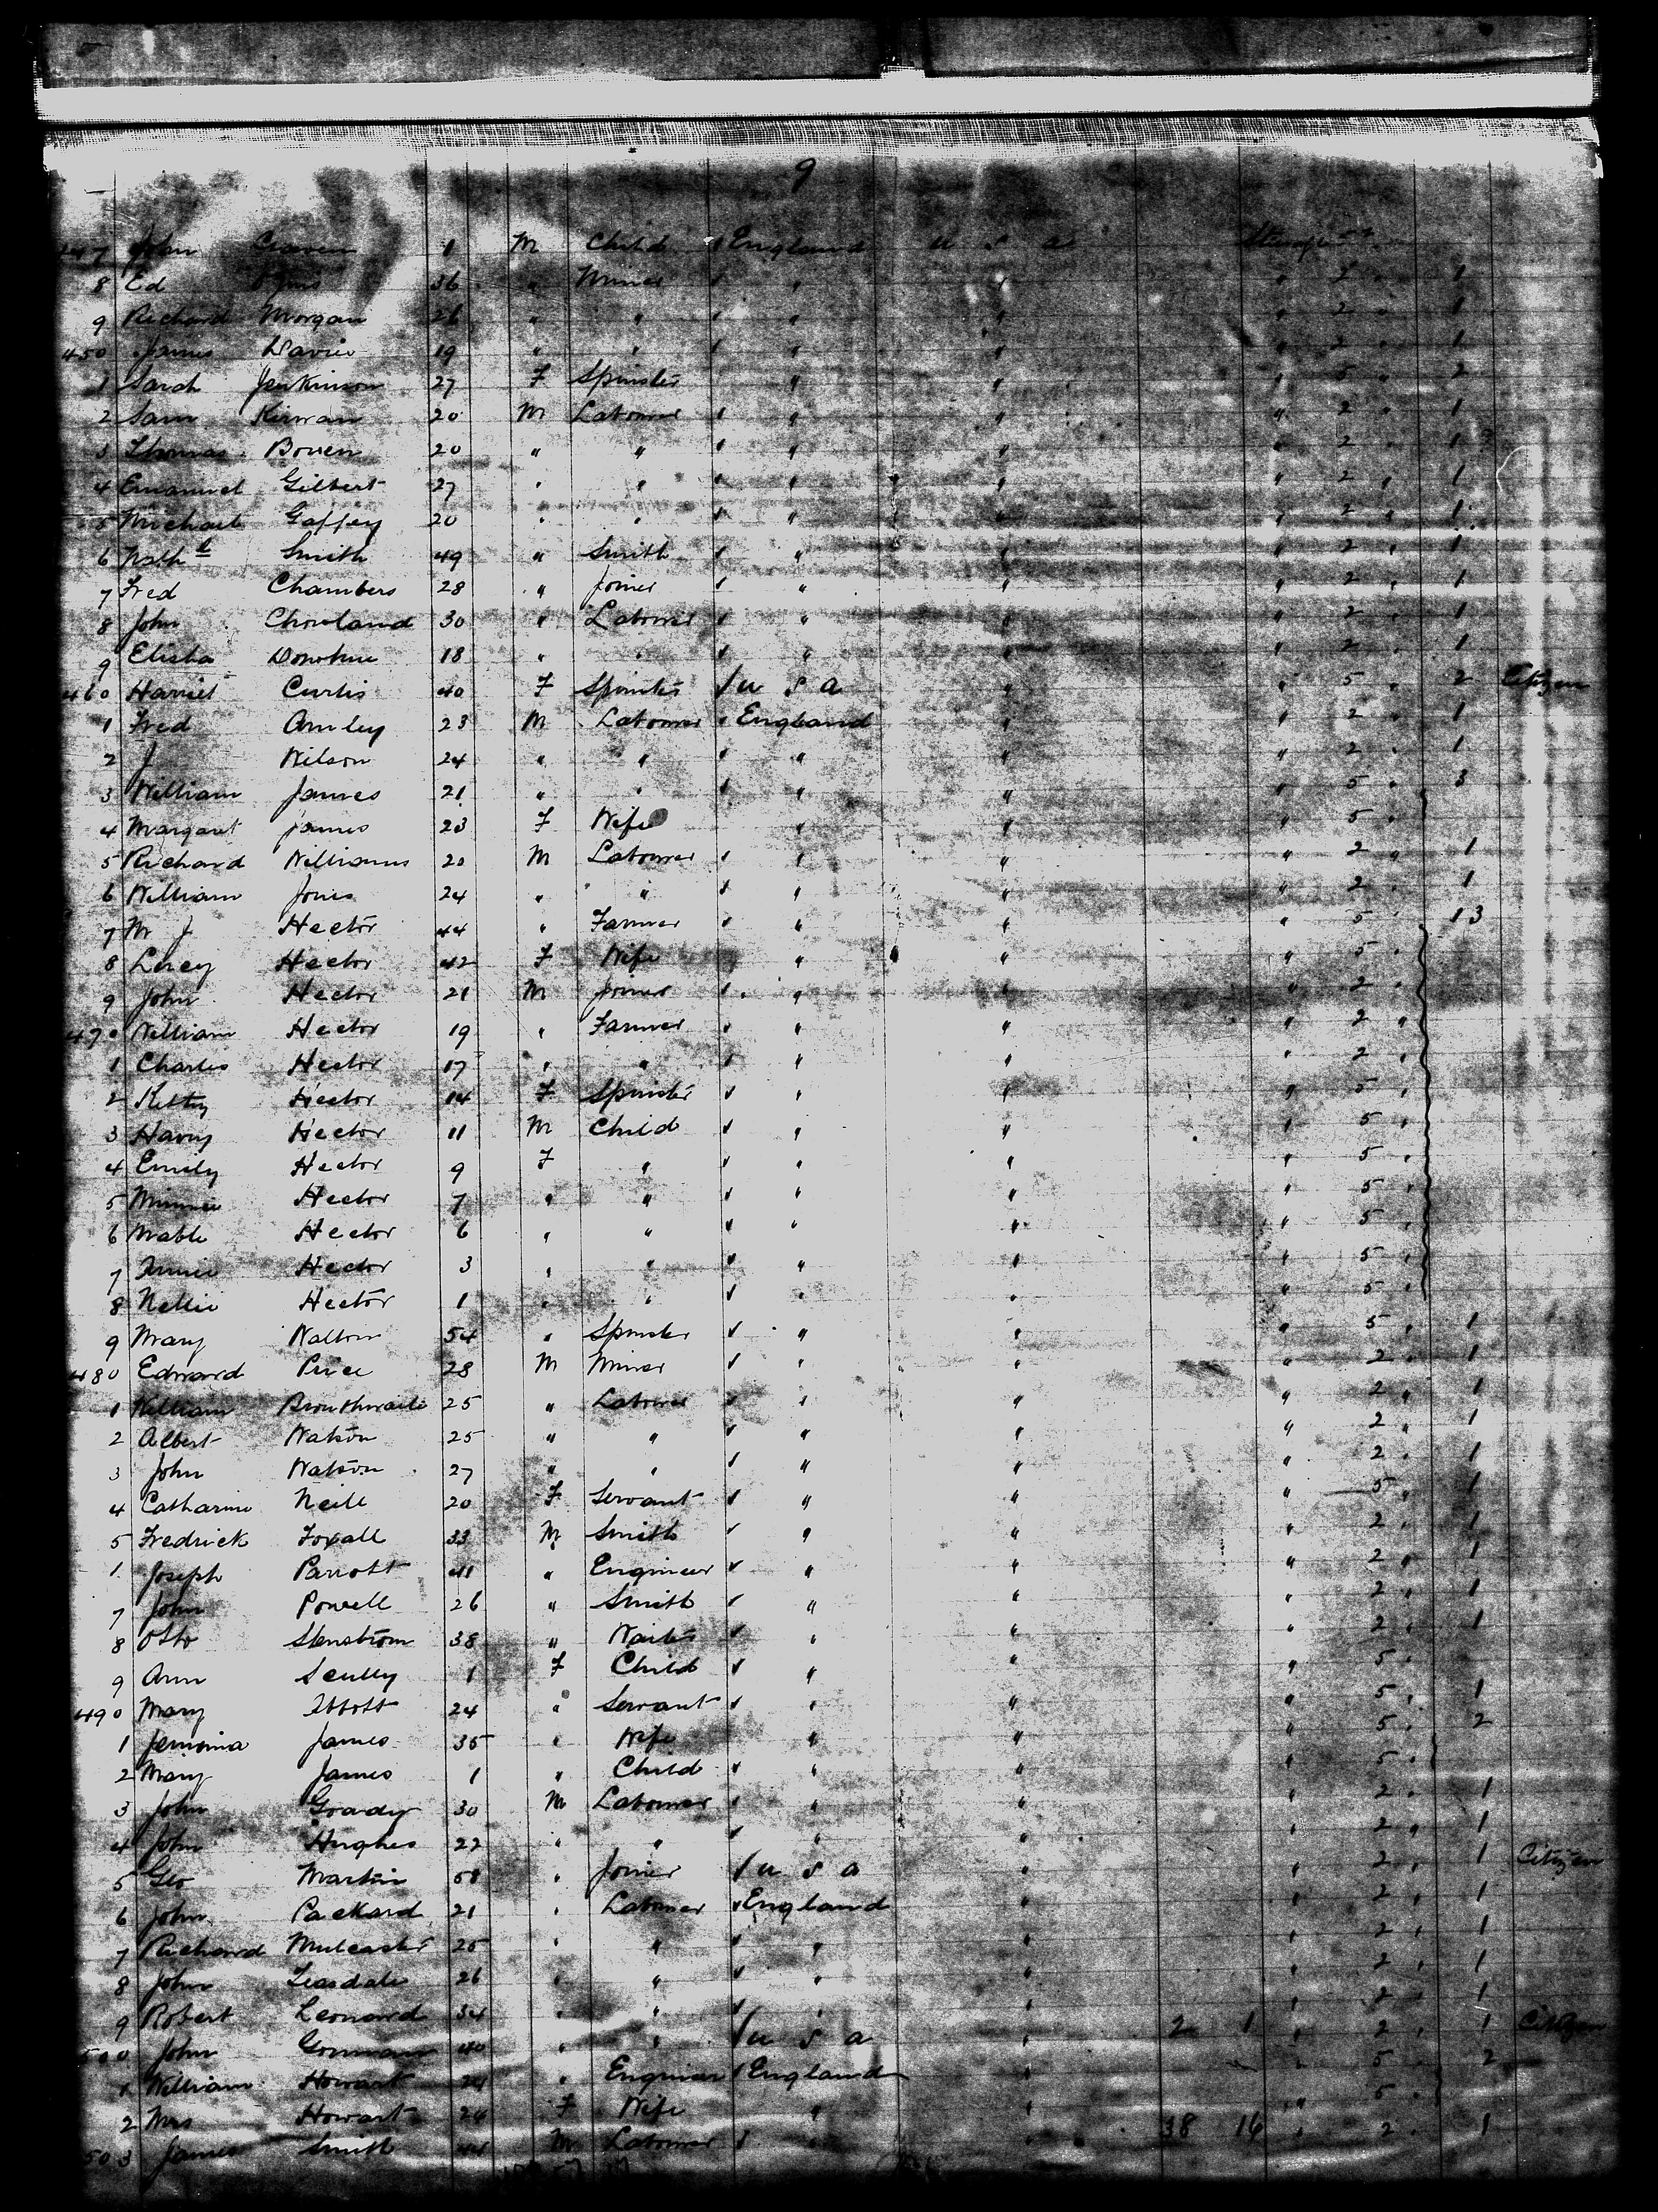 9
447 John Craven 1 M Child England U S A
8 Ed 36 " Miner " " " 2 " 1
9 Richard Morgan 26 " " " " " 2 " 1
450 James Davies 19 " " " " " 2 " 1
1 Sarah Jenkinson 27 F Spinster " " " 5 " 2
2 Sam Kirwan 20 M Labourer " " " 2 " 1
3 Thomas Bowen 20 " " " " " 2 " 1
4 Emanuel Gilbert 27 " " " " " 2 " 1
5 Michael Gaffey 20 " " " " " 2 " 1
6 Nathl Smith 49 " Smith " " " 2 " 1
7 Fred Chambers 28 " Joiner " " " 2 " 1
8 John Chowland 30 " Labourer " " " 2 " 1
9 Elisha Donohue 18 " " " " " 2 " 1
460 Harriet Curtis 40 F Spinster U S A " " 5 " 2 Citizen
1 Fred Amley 23 M Labourer England " " 2 " 1
2 J Wilson 24 " " " " " 2 " 1
3 William James 21 " " " " " 5 " 3
4 Margaret James 23 F Wife " " " 5 "
5 Richard Williams 20 M Labourer " " " 2 " 1
6 William Jones 24 " " " " " 2 " 1
7 M J Hector 44 " Farmer " " " 5 " 13
8 Lucy Hector 42 F Wife " " " 5 "
9 John Hector 21 M Joiner " " " 2 "
470 William Hector 19 " Farmer " " " 2 "
1 Charles Hector 17 " " " " " 2 "
2 Kitty Hector 14 F Spinster " " " 5 "
3 Harry Hector 11 M Child " " " 5 "
4 Emily Hector 9 F " " " " 5 "
5 Minnie Hector 7 " " " " " 5 "
6 Mable Hector 6 " " " " " 5 "
7 Annie Hector 3 " " " " " 5 "
8 Nellie Hector 1 " " " " " 5 "
9 Mary Walton 54 " Spinster " " " 5 " 1
480 Edward Price 28 M Miner " " " 2 " 1
1 William Brouthwaite 25 " Labourer " " " 2 " 1
2 Albert Watson 25 " " " " " 2 " 1
3 John Watson 27 " " " " " 2 " 1
4 Catharine Neill 20 F Servant " " " 5 " 1
5 Fredrick Foxall 33 M Smith " " " 2 " 1
Joseph Parrott 41 " Engineer " " " 2 " 1
7 John Powell 26 " Smith " " " 2 " 1
8 Otto Stenstrom 38 " Waiter " " " 2 " 1
9 Ann Scully 1 F Child " " " 5 "
490 Mary Abbott 24 " Servant " " " 5 " 1
1 Jemima James 35 " Wife " " " 5 " 2
2 Mary James 1 " Child " " " 5 "
3 John Goady 30 M Labourer " " " 2 " 1
4 John Hughes 22 " " " " " 2 " 1
5 Geo Martin 58 " Joiner U S A " " 2 " 1 Citizen
6 John Packard 21 " Labourer England " " 2 " 1
7 Richard Mulcaster 25 " " " " " 2 " 1
8 John Teasdale 26 " " " " " 2 " 1
9 Robert Leonard 34 " " " " " 2 " 1
500 John Gorman 40 " " U S A " 2 1 " 2 " 1 Citizen
1 William Howart 24 " Engineer England " " 5 " 2
2 Mrs Howart 24 F Wife " " " 5 "
503 James Smith 44 M Labourer " " 38 16 " 2 " 1